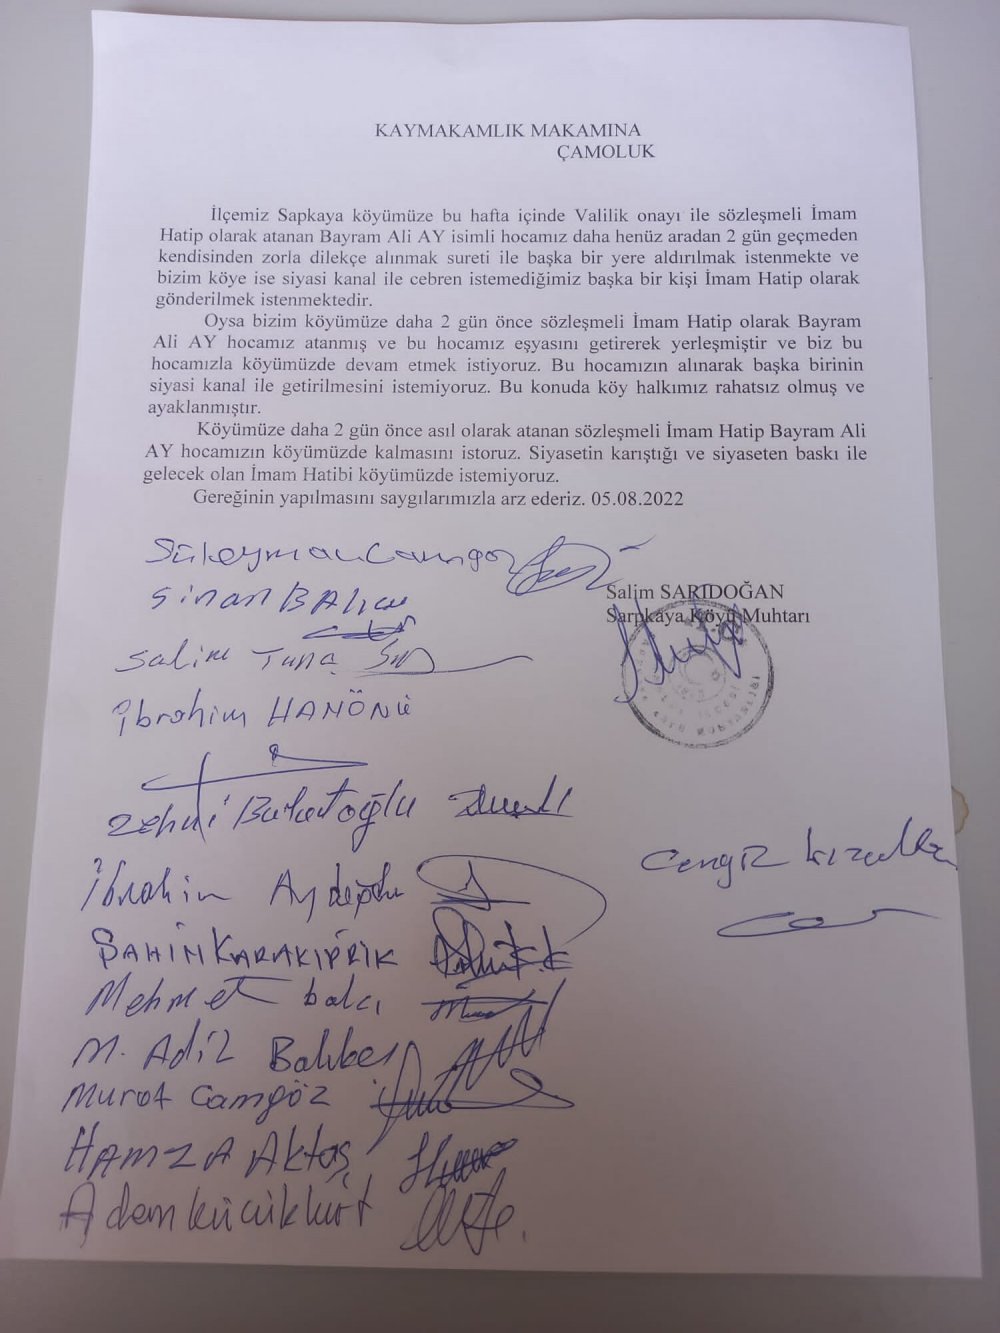 KAYMAKAMLIK MAKAMINA
ÇAMOLUK
İlçemiz Sapkaya köyümüze bu hafta içinde Valilik onayı ile sözleşmeli İmam
Hatip olarak atanan Bayram Ali AY isimli hocamız daha henüz aradan 2 gün geçmeden
kendisinden zorla dilekçe alınmak sureti ile başka bir yere aldırılmak istenmekte ve
bizim köye ise siyasi kanal ile cebren istemediğimiz başka bir kişi İmam Hatip olarak
gönderilmek istenmektedir.
Oysa bizim köyümüze daha 2 gün önce sözleşmeli İmam Hatip olarak Bayram
Ali AY hocamız atanmış ve bu hocamız eşyasını getirerek yerleşmiştir ve biz bu
hocamızla köyümüzde devam etmek istiyoruz. Bu hocamızın alınarak başka birinin
siyasi kanal ile getirilmesini istemiyoruz. Bu konuda köy halkımız rahatsız olmuş ve
ayaklanmıştır.
Köyümüze daha 2 gün önce asıl olarak atanan sözleşmeli İmam Hatip Bayram Ali
AY hocamızın köyümüzde kalmasını istoruz. Siyasetin karıştığı ve siyaseten baskı ile
gelecek olan İmam Hatibi köyümüzde istemiyoruz.
Gereğinin yapılmasını saygılarımızla arz ederiz. 05.08.2022
Süleyman Camgöz
Salim SARIDOĞAN
Sarpkaya Köyü Muhtarı
Sinan
Salim Tuna
İbrahim HANÖNÜ
Zehni Bulutoğlu
Cengiz
İbrahim
ŞAHİN KARAKİPRİK
Mehmet balcı
M. Adil
Murat Camgöz
HAMZA Aktaş
Adem küçükkurt